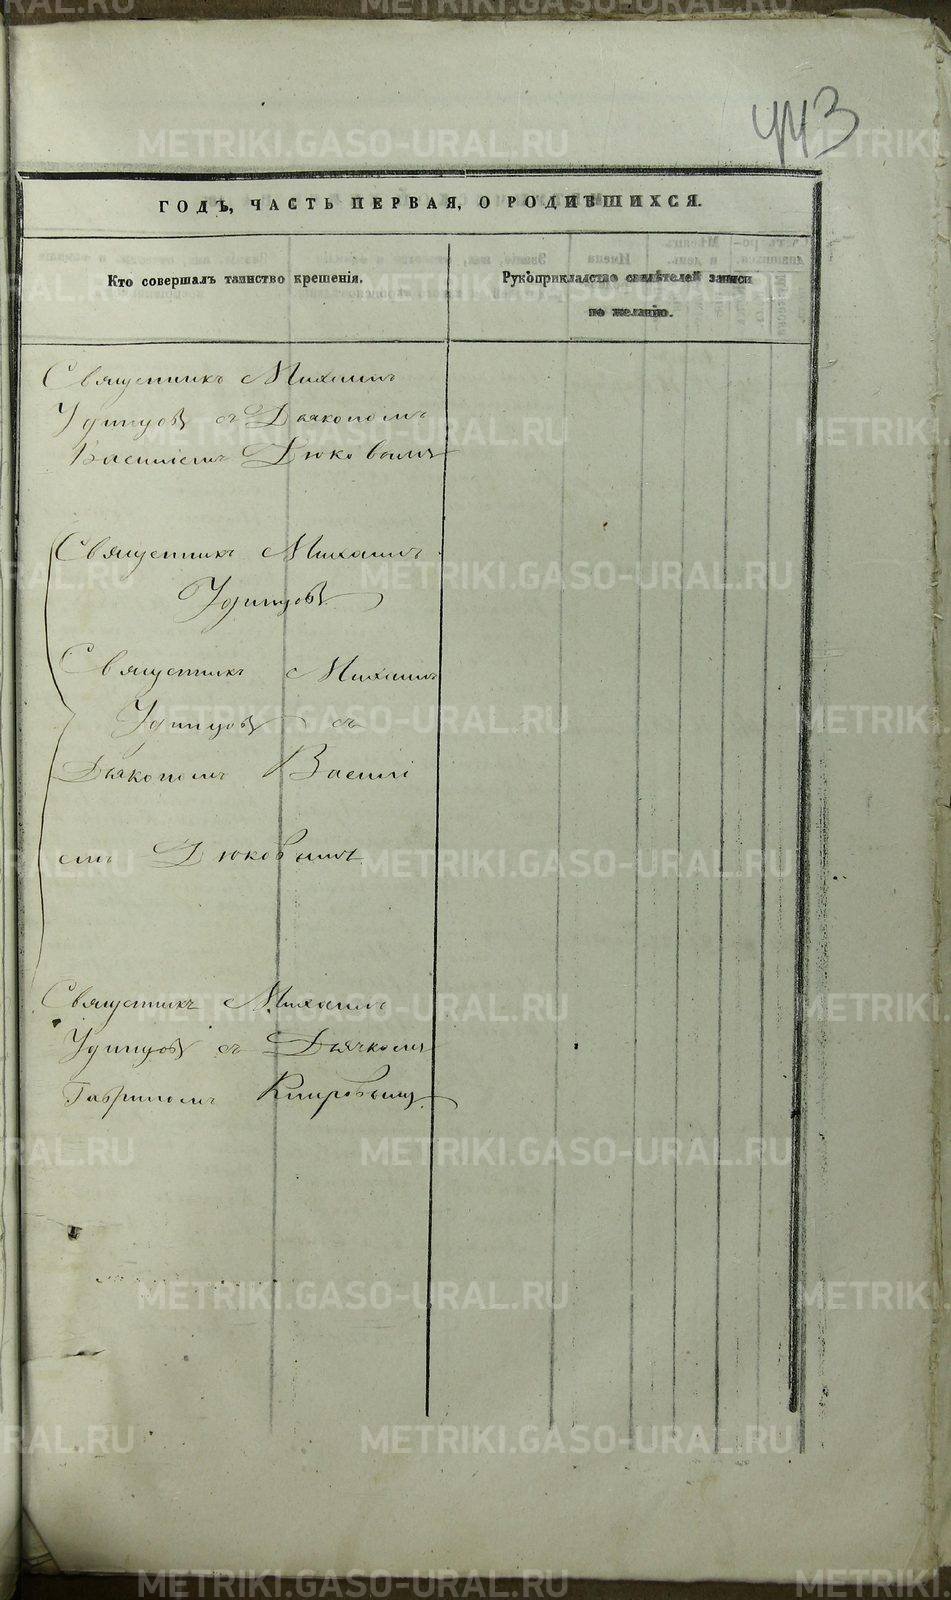 443
ГОДЪ, ЧАСТЬ ПЕРВАЯ, О РОДИВШИХСЯ.
Кто совершалъ таинство крещенія.
Рукоприкладство свидѣтелей записи
по желанію.
Священникъ Михаилъ
Удинцовъ съ Дьякономъ
Василіемъ Дюковымъ
Священникъ Михаилъ
Удинцовъ
Священникъ Михаилъ
Удинцовъ съ
Дьякономъ Василі
емъ Дюковымъ
Священникъ Михаилъ
Удинцовъ съ Дьячкомъ
Гавриломъ
METRIKI.GASO-URAL.RU